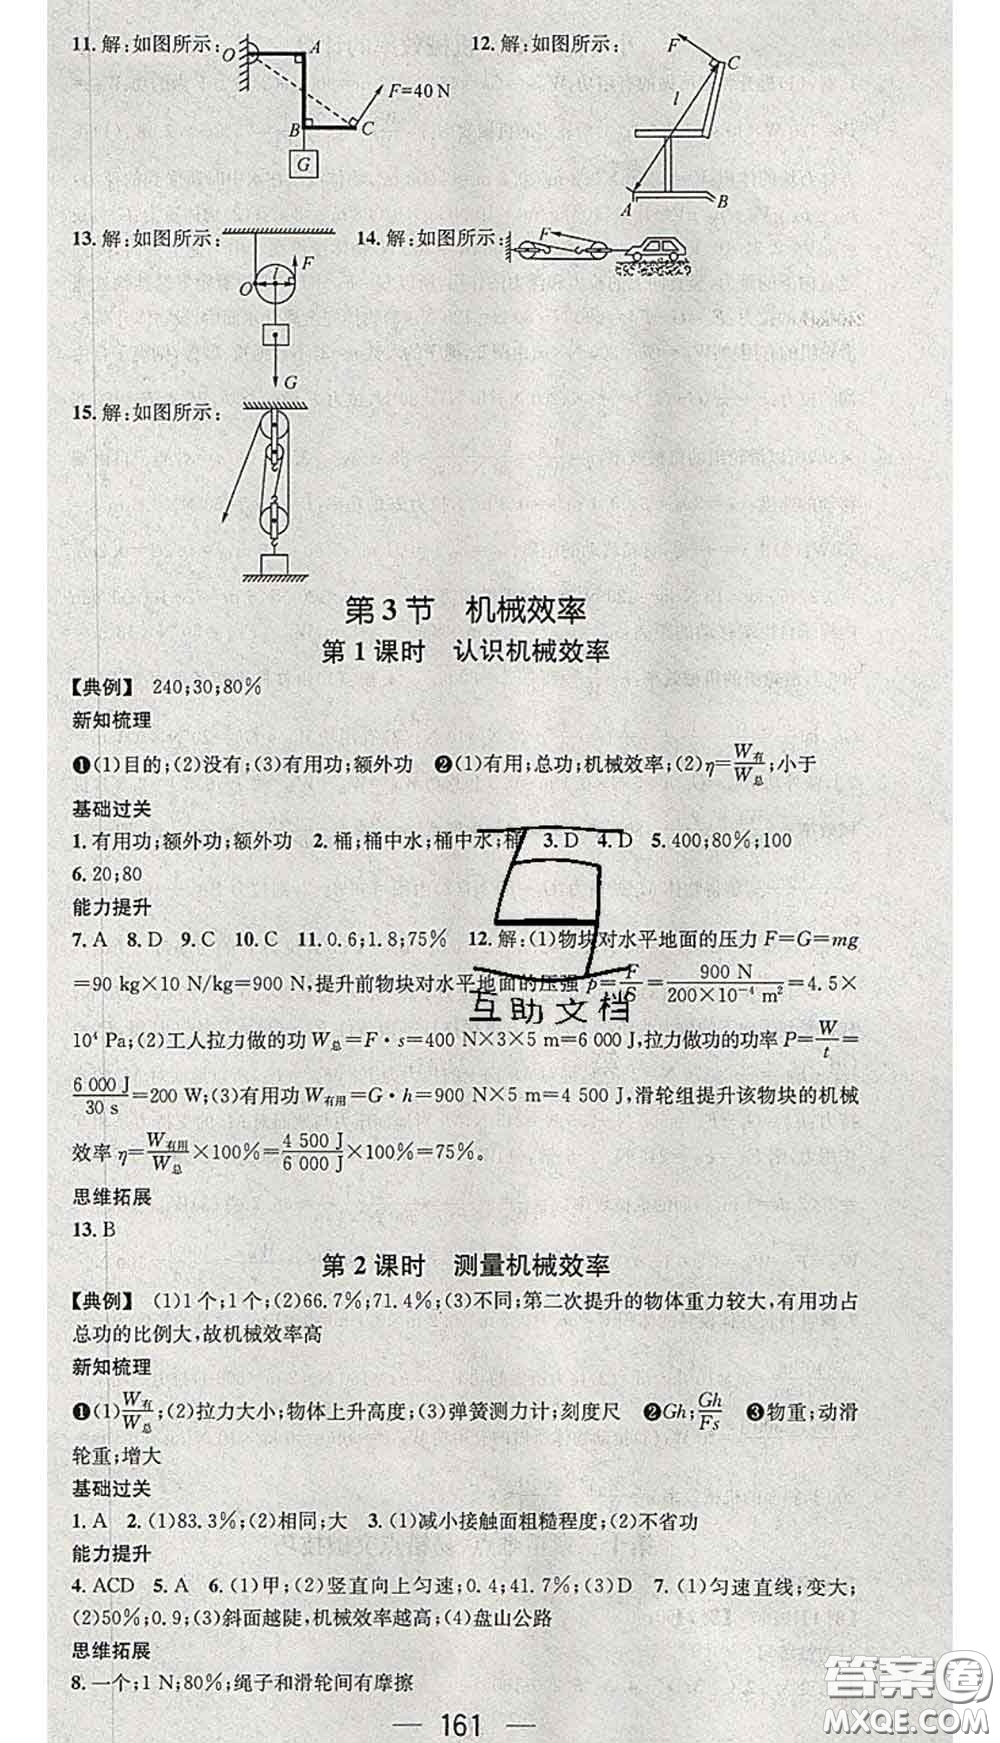 11. 解:如图所示: O A F=40 N B C G
12. 解:如图所示: F C l A B
13. 解:如图所示: F O l G
14. 解:如图所示: F
15. 解:如图所示:
第 3 节　机械效率
第 1 课时　认识机械效率
【典例】 240;30;80%
新知梳理
❶(1)目的;(2)没有;(3)有用功;额外功　❷(1)有用;总功;机械效率;(2)η=W有/W总;小于
基础过关
1. 有用功;额外功;额外功　2. 桶;桶中水;桶中水;桶　3. D　4. D　5. 400;80%;100
6. 20;80
能力提升
7. A　8. D　9. C　10. C　11. 0.6;1.8;75%　12. 解:(1)物块对水平地面的压力 F=G=mg
=90 kg×10 N/kg=900 N,提升前物块对水平地面的压强 p=F/S=900 N/(200×10⁻⁴ m²)=4.5×
10⁴ Pa;(2)工人拉力做的功 W总=F·s=400 N×3×5 m=6 000 J,拉力做功的功率 P=W/t=
6 000 J/30 s=200 W;(3)有用功 W有用=G·h=900 N×5 m=4 500 J,滑轮组提升该物块的机械
效率 η=W有用/W总×100%=4 500 J/6 000 J×100%=75%。
思维拓展
13. B
互助文档
第 2 课时　测量机械效率
【典例】 (1)1个;1个;(2)66.7%;71.4%;(3)不同;第二次提升的物体重力较大,有用功占
总功的比例大,故机械效率高
新知梳理
❶(1)W有/W总;(2)拉力大小;物体上升高度;(3)弹簧测力计;刻度尺　❷Gh;Gh/Fs　❸物重;动滑
轮重;增大
基础过关
1. A　2. (1)83.3%;(2)相同;大　3. (1)减小接触面粗糙程度;(2)不省功
能力提升
4. ACD　5. A　6. (1)甲;(2)竖直向上匀速;0.4;41.7%;(3)D　7. (1)匀速直线;变大;
(2)50%;0.9;(3)斜面越陡,机械效率越高;(4)盘山公路
思维拓展
8. 一个;1 N;80%;绳子和滑轮间有摩擦
— 161 —
答案圈
MXQE.COM